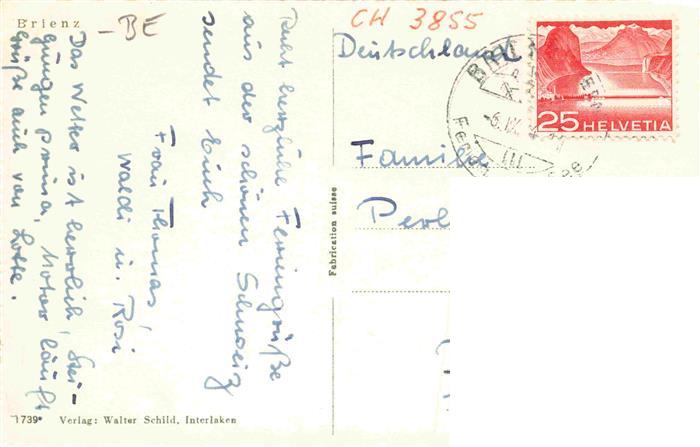 Brienz
-BE
CH 3855
Deutschland
25 HELVETIA
Familie
Perl
Fabrication suisse
Recht herzliche Feriengrüße
aus der schönen Schweiz
sendet Euch
Frau Thomas,
Waldi u. Rosi
Das Wetter ist herrlich, Stei-
gungen prima, Motor läuft
Grüße auch von Lotte.
1739* Verlag: Walter Schild, Interlaken